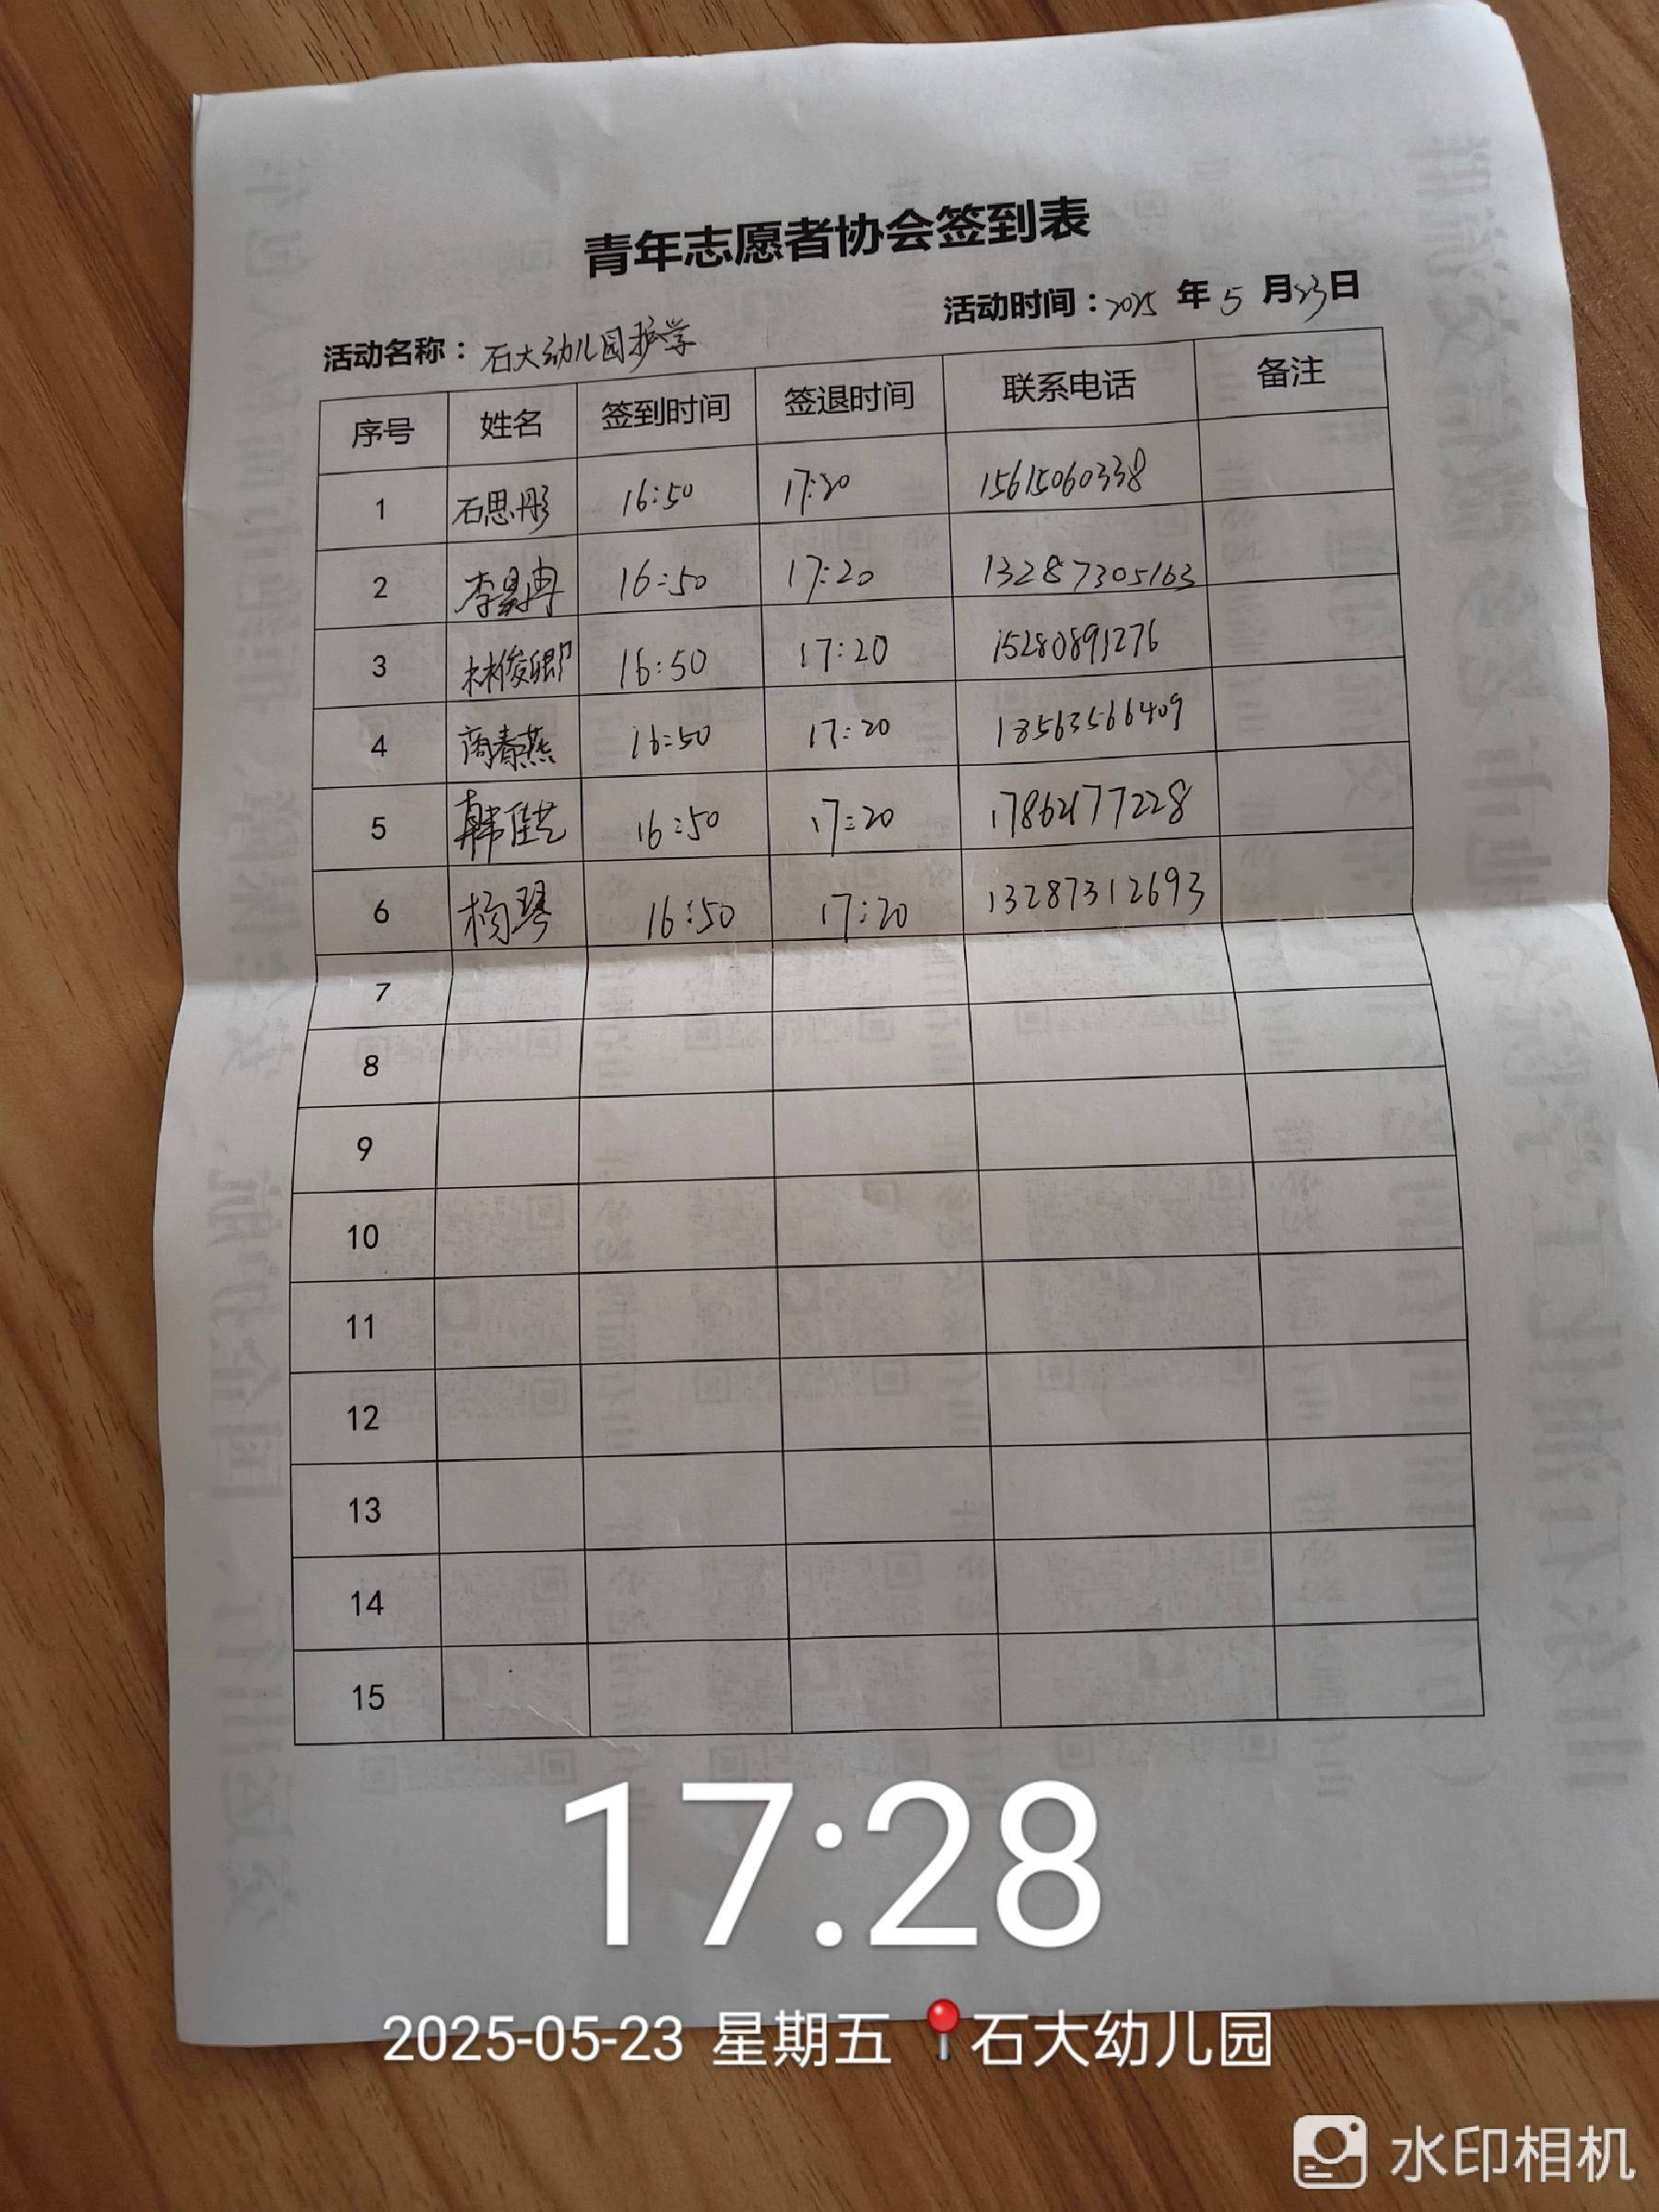 青年志愿者协会签到表
活动名称：石大幼儿园护学 活动时间：2025 年 5 月 23 日
序号 姓名 签到时间 签退时间 联系电话 备注
1 石思彤 16:50 17:20 15615060338
2 李昊冉 16:50 17:20 13287305163
3 林俊卿 16:50 17:20 15280891276
4 商春燕 16:50 17:20 18563566409
5 韩佳艺 16:50 17:20 17862177228
6 杨琴 16:50 17:20 13287312693
7
8
9
10
11
12
13
14
15
17:28
2025-05-23 星期五 石大幼儿园
水印相机